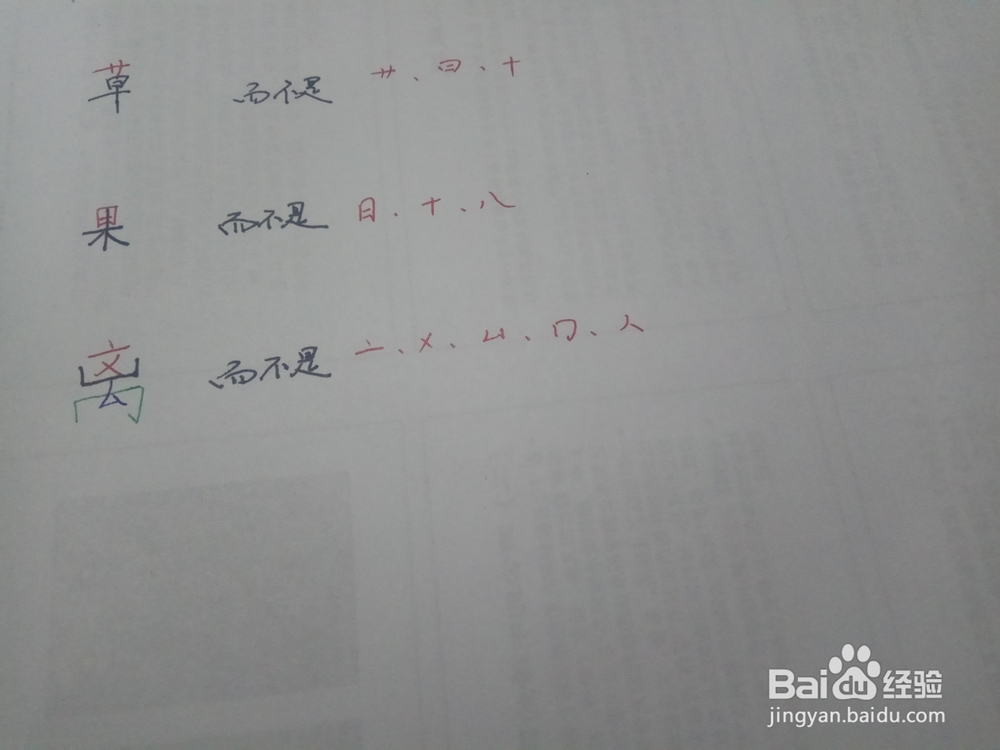 草 而不是 艹、日、十
果 而不是 日、十、八
离 而不是 亠、乂、凵、冂、人
Baidu经验
jingyan.baidu.com